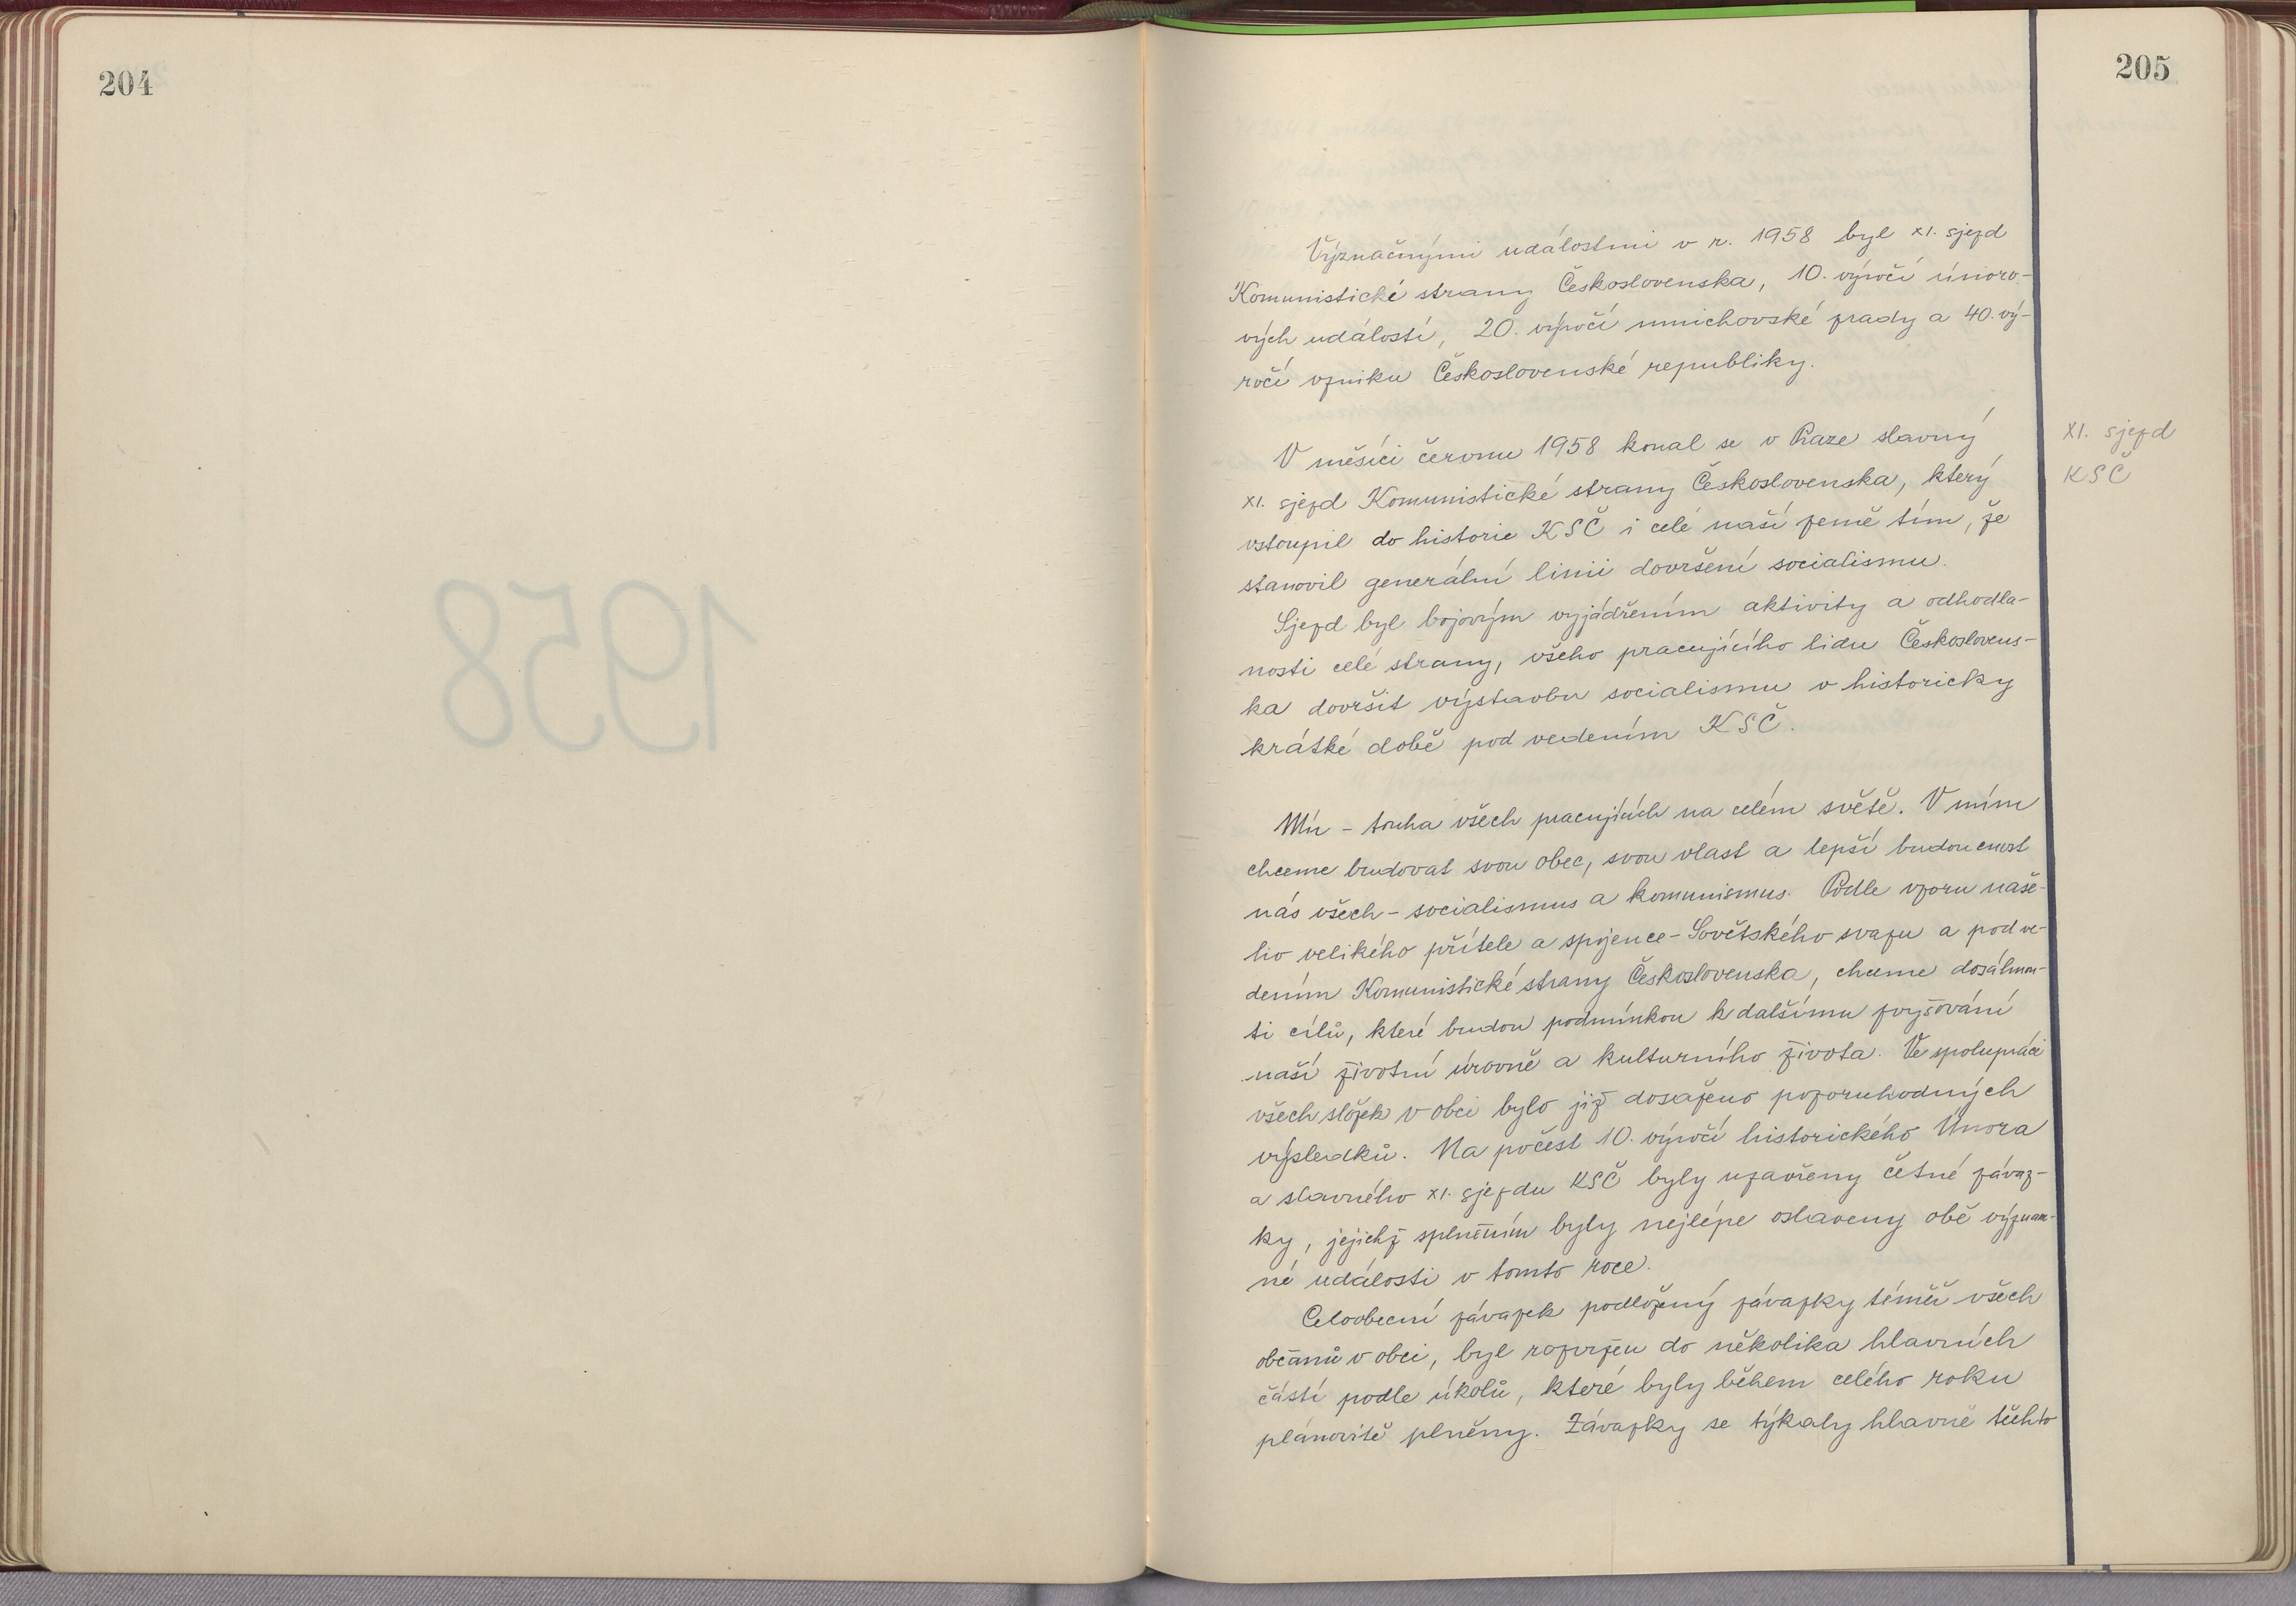 204
1958
205
Význačnými událostmi v r. 1958 byl XI. sjezd
Komunistické strany Československa, 10. výročí únoro-
vých událostí, 20. výročí mnichovské zrady a 40. vý-
ročí vzniku Československé republiky.
XI. sjezd
KSČ
V měsíci červnu 1958 konal se v Praze slavný
XI. sjezd Komunistické strany Československa, který
vstoupil do historie KSČ i celé naší země tím, že
stanovil generální linii dovršení socialismu.
Sjezd byl bojovým vyjádřením aktivity a odhodla-
nosti celé strany, všeho pracujícího lidu Českosloven-
ska dovršit výstavbu socialismu v historicky
krátké době pod vedením KSČ.
Mír - touha všech pracujících na celém světě. V mím
chceme budovat svou obec, svou vlast a lepší budoucnost
nás všech - socialismus a komunismus. Podle vzoru naše-
ho velikého přítele a spojence - Sovětského svazu a pod ve-
dením Komunistické strany Československa, chceme dosáhnou-
ti cílů, které budou podmínkou k dalšímu zvyšování
naší životní úrovně a kulturního života. Ve spolupráci
všech složek v obci bylo již dosaženo pozoruhodných
výsledků. Na počest 10. výročí historického Února
a slavného XI. sjezdu KSČ byly uzavřeny četné závaz-
ky, jejichž splněním byly nejlépe oslaveny obě význam-
né události v tomto roce.
Celoobecní závazek podložený závazky téměř všech
občanů v obci, byl rozvržen do několika hlavních
částí podle úkolů, které byly během celého roku
plánovitě plněny. Závazky se týkaly hlavně těchto